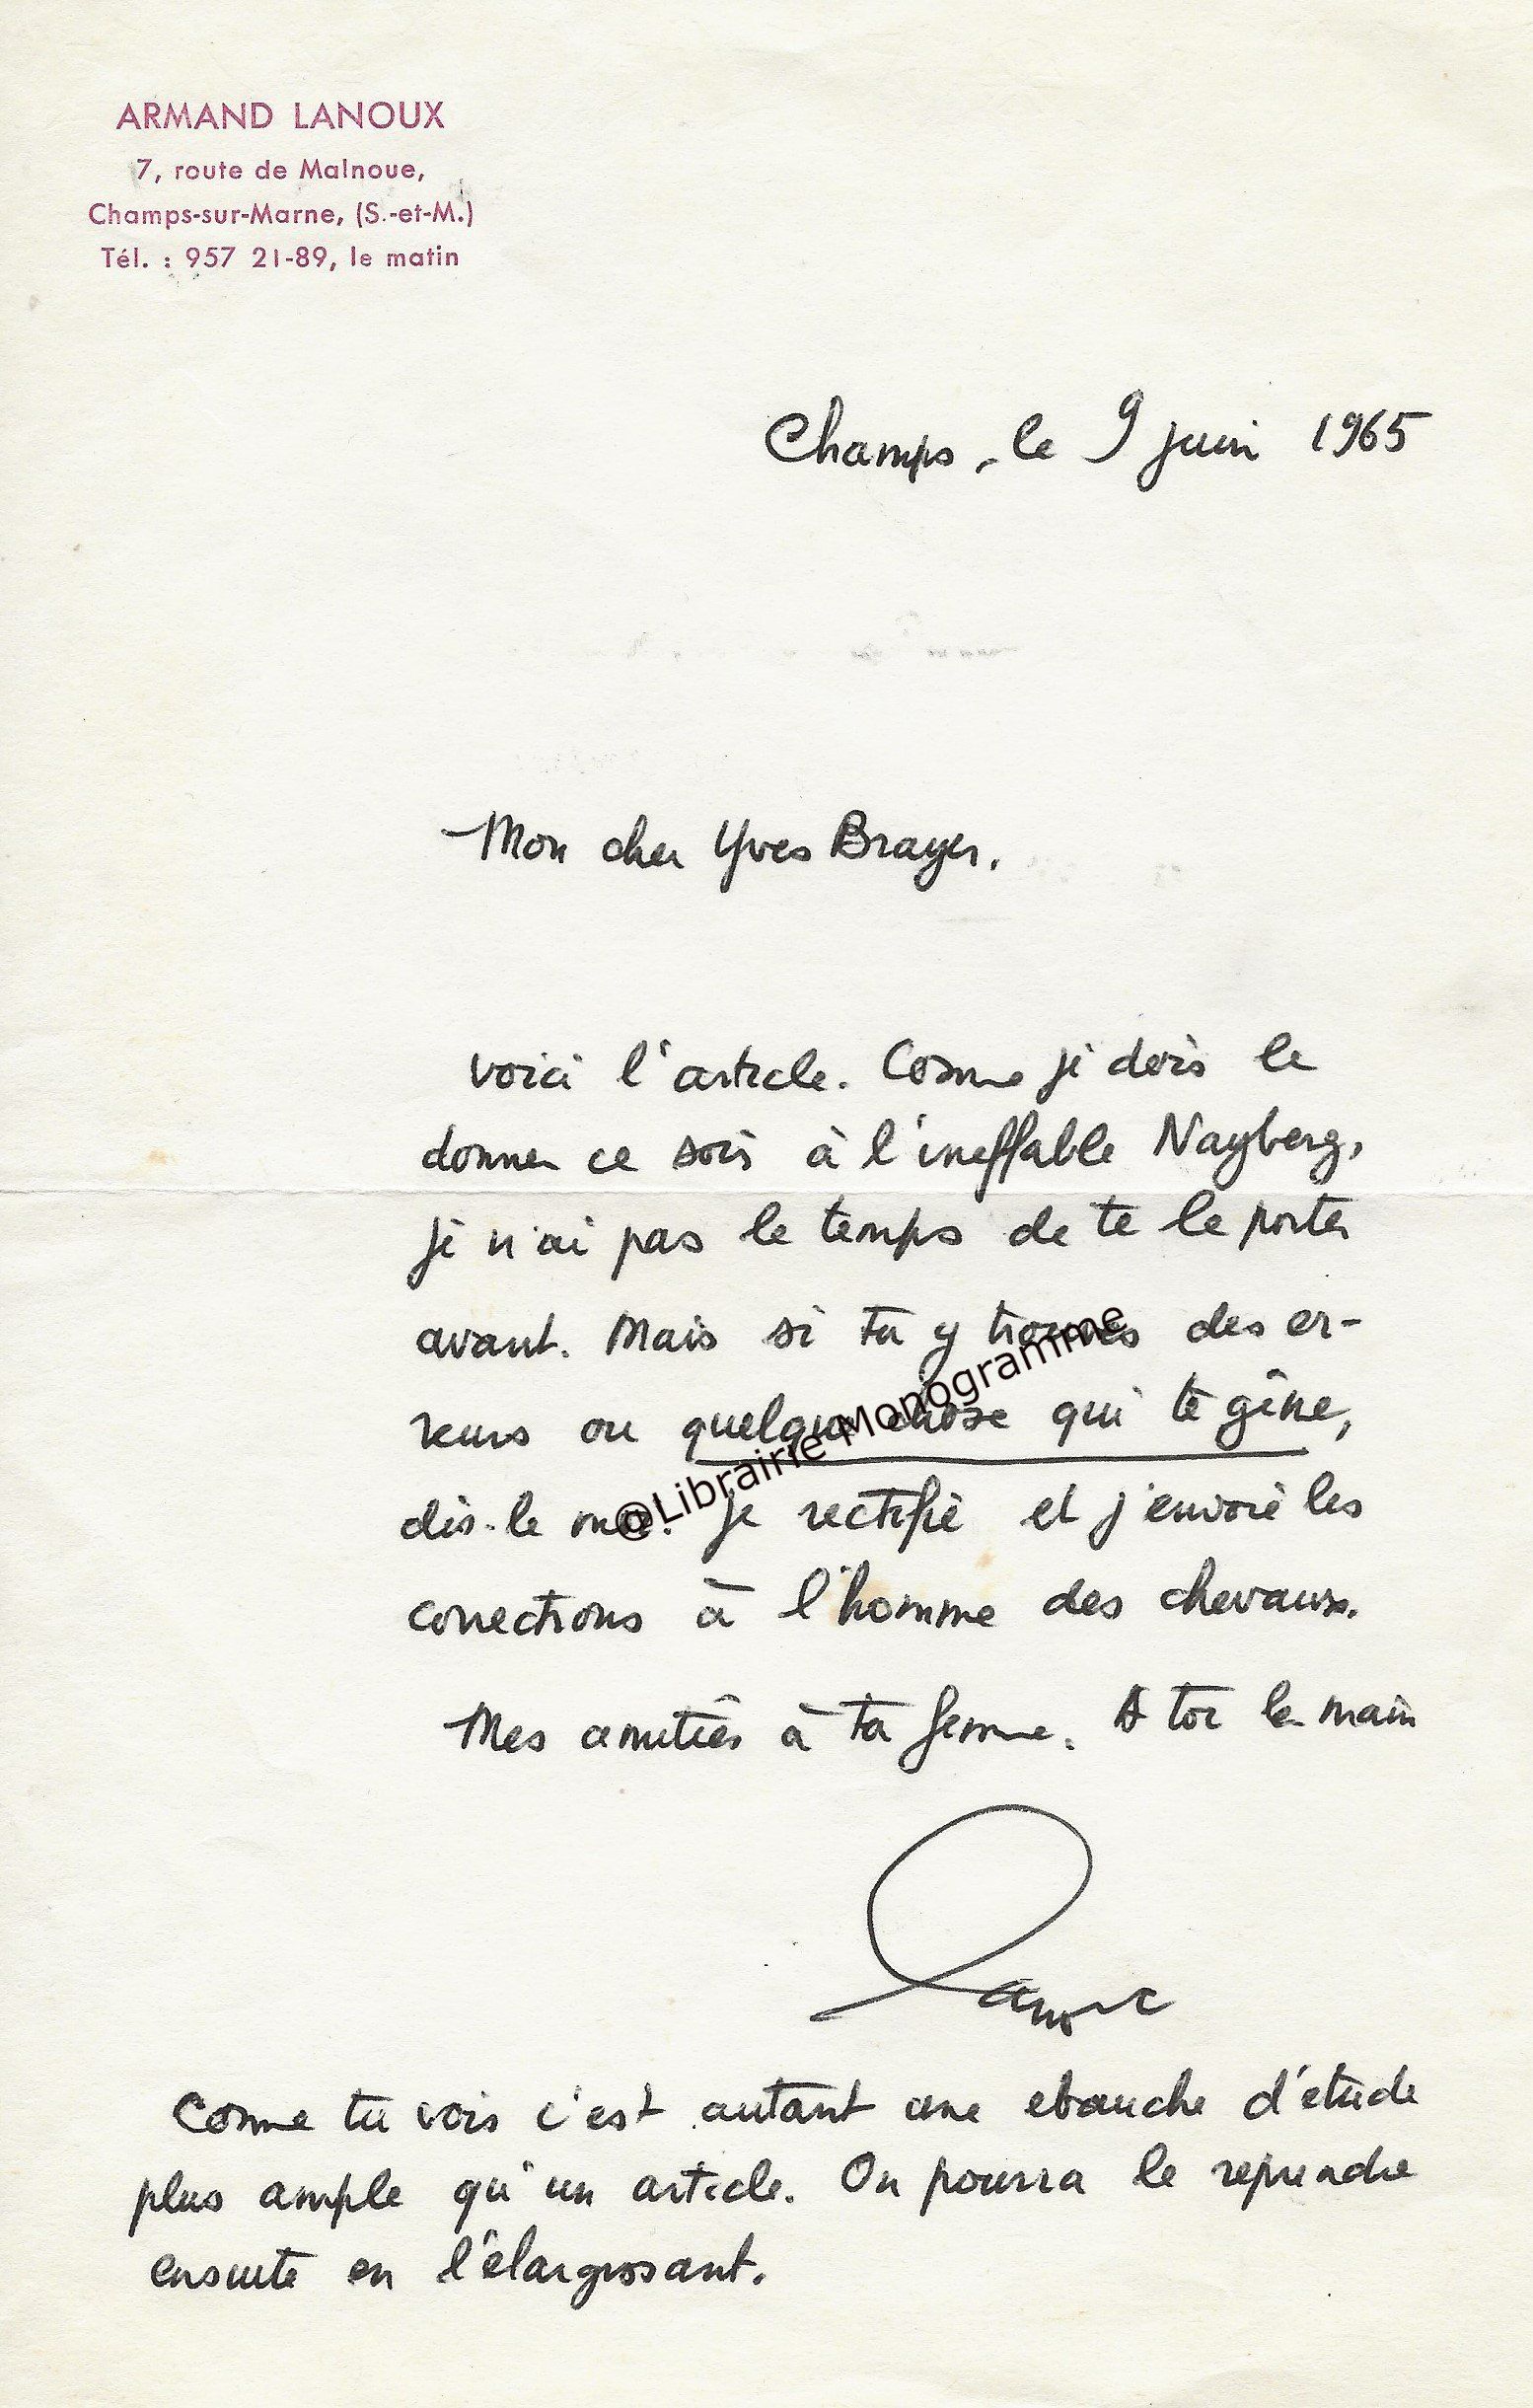 ARMAND LANOUX
7, route de Malnoue,
Champs-sur-Marne, (S.-et-M.)
Tél. : 957 21-89, le matin
Champs, le 9 juin 1965
Mon cher Yves Brayer,
voici l'article. Comme je dois le
donner ce soir à l'ineffable Nayberg,
je n'ai pas le temps de te le porter
avant. Mais si tu y trouves des er-
reurs ou quelque chose qui te gêne,
dis-le moi. Je rectifie et j'envoie les
corrections à l'homme des chevaux.
Mes amitiés à ta femme. A toi la main
Lanoux
Comme tu vois c'est autant une ebauche d'étude
plus ample qu'un article. On pourra le reprendre
ensuite en l'élargissant.
@Librairie Monogramme